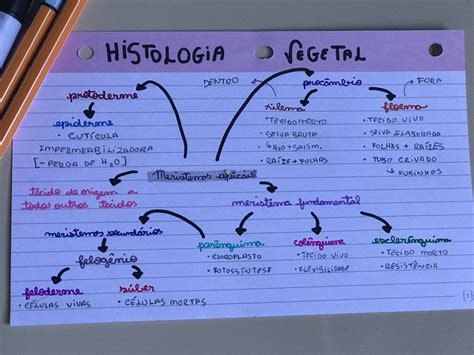 HISTOLOGIA VEGETAL
protoderme
epiderme
• CUTÍCULA
IMPERMEABILIZADORA
[- PERDA DE H₂O]
DENTRO
procâmbio
FORA
xilema
• TECIDO MORTO
• SEIVA BRUTA
• H₂O + SAISM.
• RAÍZES → FOLHAS
floema
• TECIDO VIVO
• SEIVA ELABORADA
• FOLHAS → RAÍZES
• TUBO CRIVADO
↳ FURINHOS
Meristemas apicais
tecido de origem a
todos outros tecidos
meristema fundamental
meristemas secundários
felogênio
feloderme
• CÉLULAS VIVAS
súber
• CÉLULAS MORTAS
parênquima
• CLOROPLASTO
• FOTOSSÍNTESE
colênquima
• TECIDO VIVO
• FLEXIBILIDADE
esclerênquima
• TECIDO MORTO
• RESISTÊNCIA